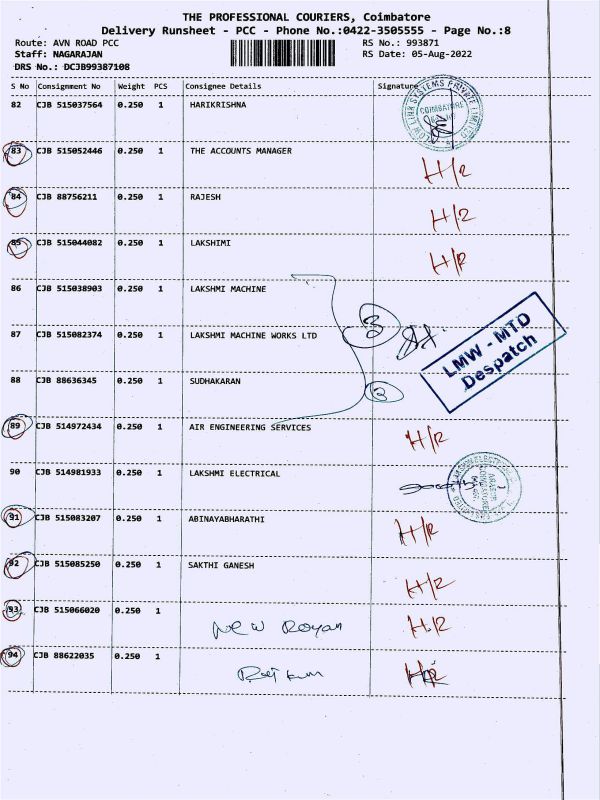 THE PROFESSIONAL COURIERS, Coimbatore
Delivery Runsheet - PCC - Phone No.:0422-3505555 - Page No.:8
Route: AVN ROAD PCC RS No.: 993871
Staff: NAGARAJAN RS Date: 05-Aug-2022
DRS No.: DCJB99387108
S No Consignment No Weight PCS Consignee Details Signature
82 CJB 515037564 0.250 1 HARIKRISHNA
COIMBATORE
83 CJB 515052446 0.250 1 THE ACCOUNTS MANAGER H/R
84 CJB 88756211 0.250 1 RAJESH H/R
85 CJB 515044082 0.250 1 LAKSHIMI H/R
86 CJB 515038903 0.250 1 LAKSHMI MACHINE
87 CJB 515082374 0.250 1 LAKSHMI MACHINE WORKS LTD 3
LMW - MTD
Despatch
88 CJB 88636345 0.250 1 SUDHAKARAN
89 CJB 514972434 0.250 1 AIR ENGINEERING SERVICES H/R
90 CJB 514981933 0.250 1 LAKSHMI ELECTRICAL
91 CJB 515083207 0.250 1 ABINAYABHARATHI H/R
92 CJB 515085250 0.250 1 SAKTHI GANESH H/R
93 CJB 515066020 0.250 1 New Royan H/R
94 CJB 88622035 0.250 1 H/R